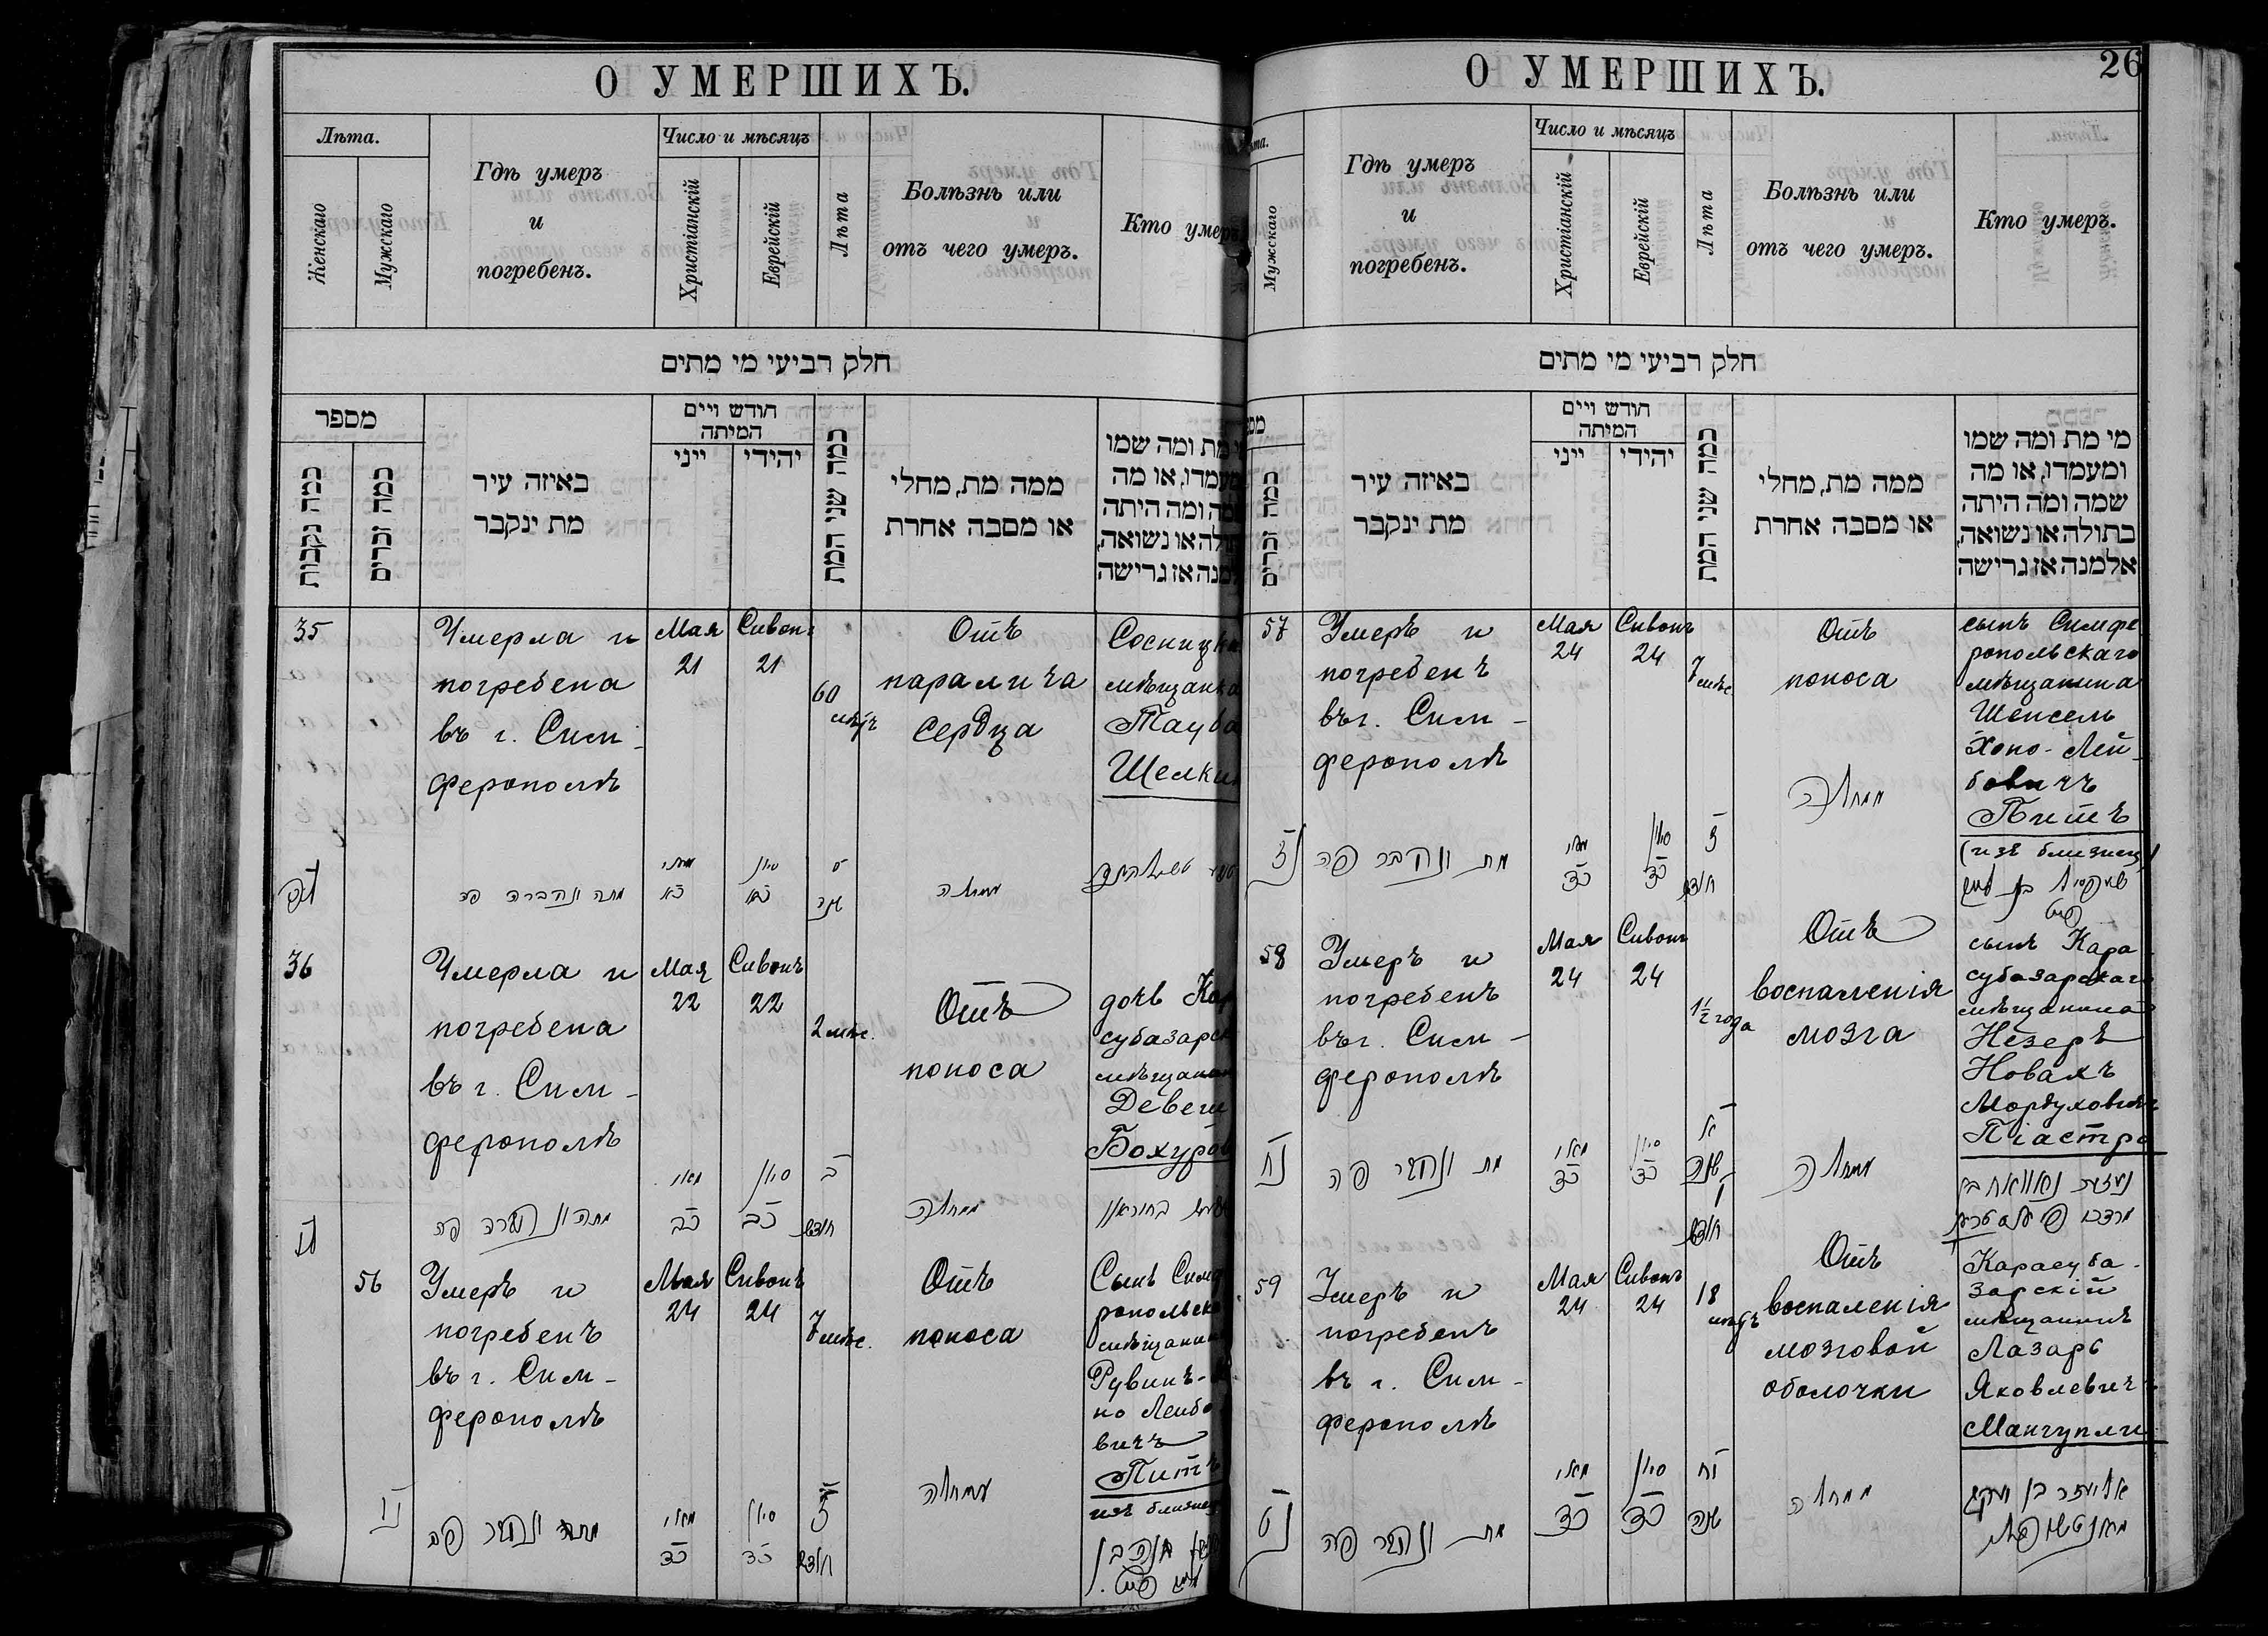 О УМЕРШИХЪ.
Лѣта.
Женскаго
Мужскаго
Гдѣ умеръ
и
погребенъ.
Число и мѣсяцъ
Христіанскій
Еврейскій
Лѣта
Болѣзнь или
отъ чего умеръ.
Кто умеръ
חלק רביעי מי מתים
מספר
כמה נקבות
כמה זכרים
באיזה עיר
מת ינקבר
חודש ויים
המיתה
ייני
יהידי
כמה שני המת
ממה מת, מחלי
או מסבה אחרת
מת ומה שמו
או מה
ומה היתה
או נשואה,
אז גרישה
35
Умерла и
погребена
въ г. Сим-
ферополѣ
Мая
21
Сивонъ
21
60
лѣтъ
Отъ
паралича
сердца
Сосницка
мѣщанка
Тауба
Шелки
מתה ונקברה פה
מאי
כא
סיון
כא
ס
שנה
ממחלה
36
Умерла и
погребена
въ г. Сим-
ферополѣ
Мая
22
Сивонъ
22
2 мѣс.
Отъ
поноса
дочь Кар
субазарск
мѣщанин
Бохуров
לו
פה
מאי
כב
סיון
כב
ב
חדש
ממחלה
56
Умеръ и
погребенъ
въ г. Сим-
ферополѣ
Мая
24
Сивонъ
24
7 мѣс.
Отъ
поноса
Сынъ Симф
ропольска
мѣщанин
Рувинъ-
но Лейбо
вичъ
Питъ
изъ близнец
נו
ונקבר פה
מאי
כד
סיון
כד
ז
חדש
ממחלה
О УМЕРШИХЪ.
26
та.
Мужскаго
Гдѣ умеръ
и
погребенъ.
Число и мѣсяцъ
Христіанскій
Еврейскій
Лѣта
Болѣзнь или
отъ чего умеръ.
Кто умеръ.
חלק רביעי מי מתים
כמה זכרים
באיזה עיר
מת ינקבר
חודש ויים
המיתה
ייני
יהידי
כמה שני המת
ממה מת, מחלי
או מסבה אחרת
מי מת ומה שמו
ומעמדו, או מה
שמה ומה היתה
בתולה או נשואה,
אלמנה אז גרישה
57
Умеръ и
погребенъ
въ г. Сим-
ферополѣ
Мая
24
Сивонъ
24
7 мѣс
Отъ
поноса
сынъ Симфе
ропольскаго
мѣщанина
Шепсель
Хоно-Лей-
бовичъ
Питъ
(изъ близнец)
נז
מת ונקבר פה
מאי
כד
סיון
כד
ז
חדש
ממחלה
58
Умеръ и
погребенъ
въ г. Сим-
ферополѣ
Мая
24
Сивонъ
24
1½ года
Отъ
воспаленія
мозга
сынъ Кара-
субазарскаго
мѣщанина
Незеръ
Новахъ
Мордуховичъ
Піастро
נח
מת ונקבר פה
מאי
כד
סיון
כד
א
שנה
ו
חדש
ממחלה
59
Умеръ и
погребенъ
въ г. Сим-
ферополѣ
Мая
24
Сивонъ
24
18
лѣтъ
Отъ
воспаленія
мозговой
оболочки
Карасуба-
зарскій
мѣщанинъ
Лазарь
Яковлевичъ
Мангупли
נט
מת ונקבר פה
מאי
כד
סיון
כד
יח
שנה
ממחלה
אליעזר בן יעקב